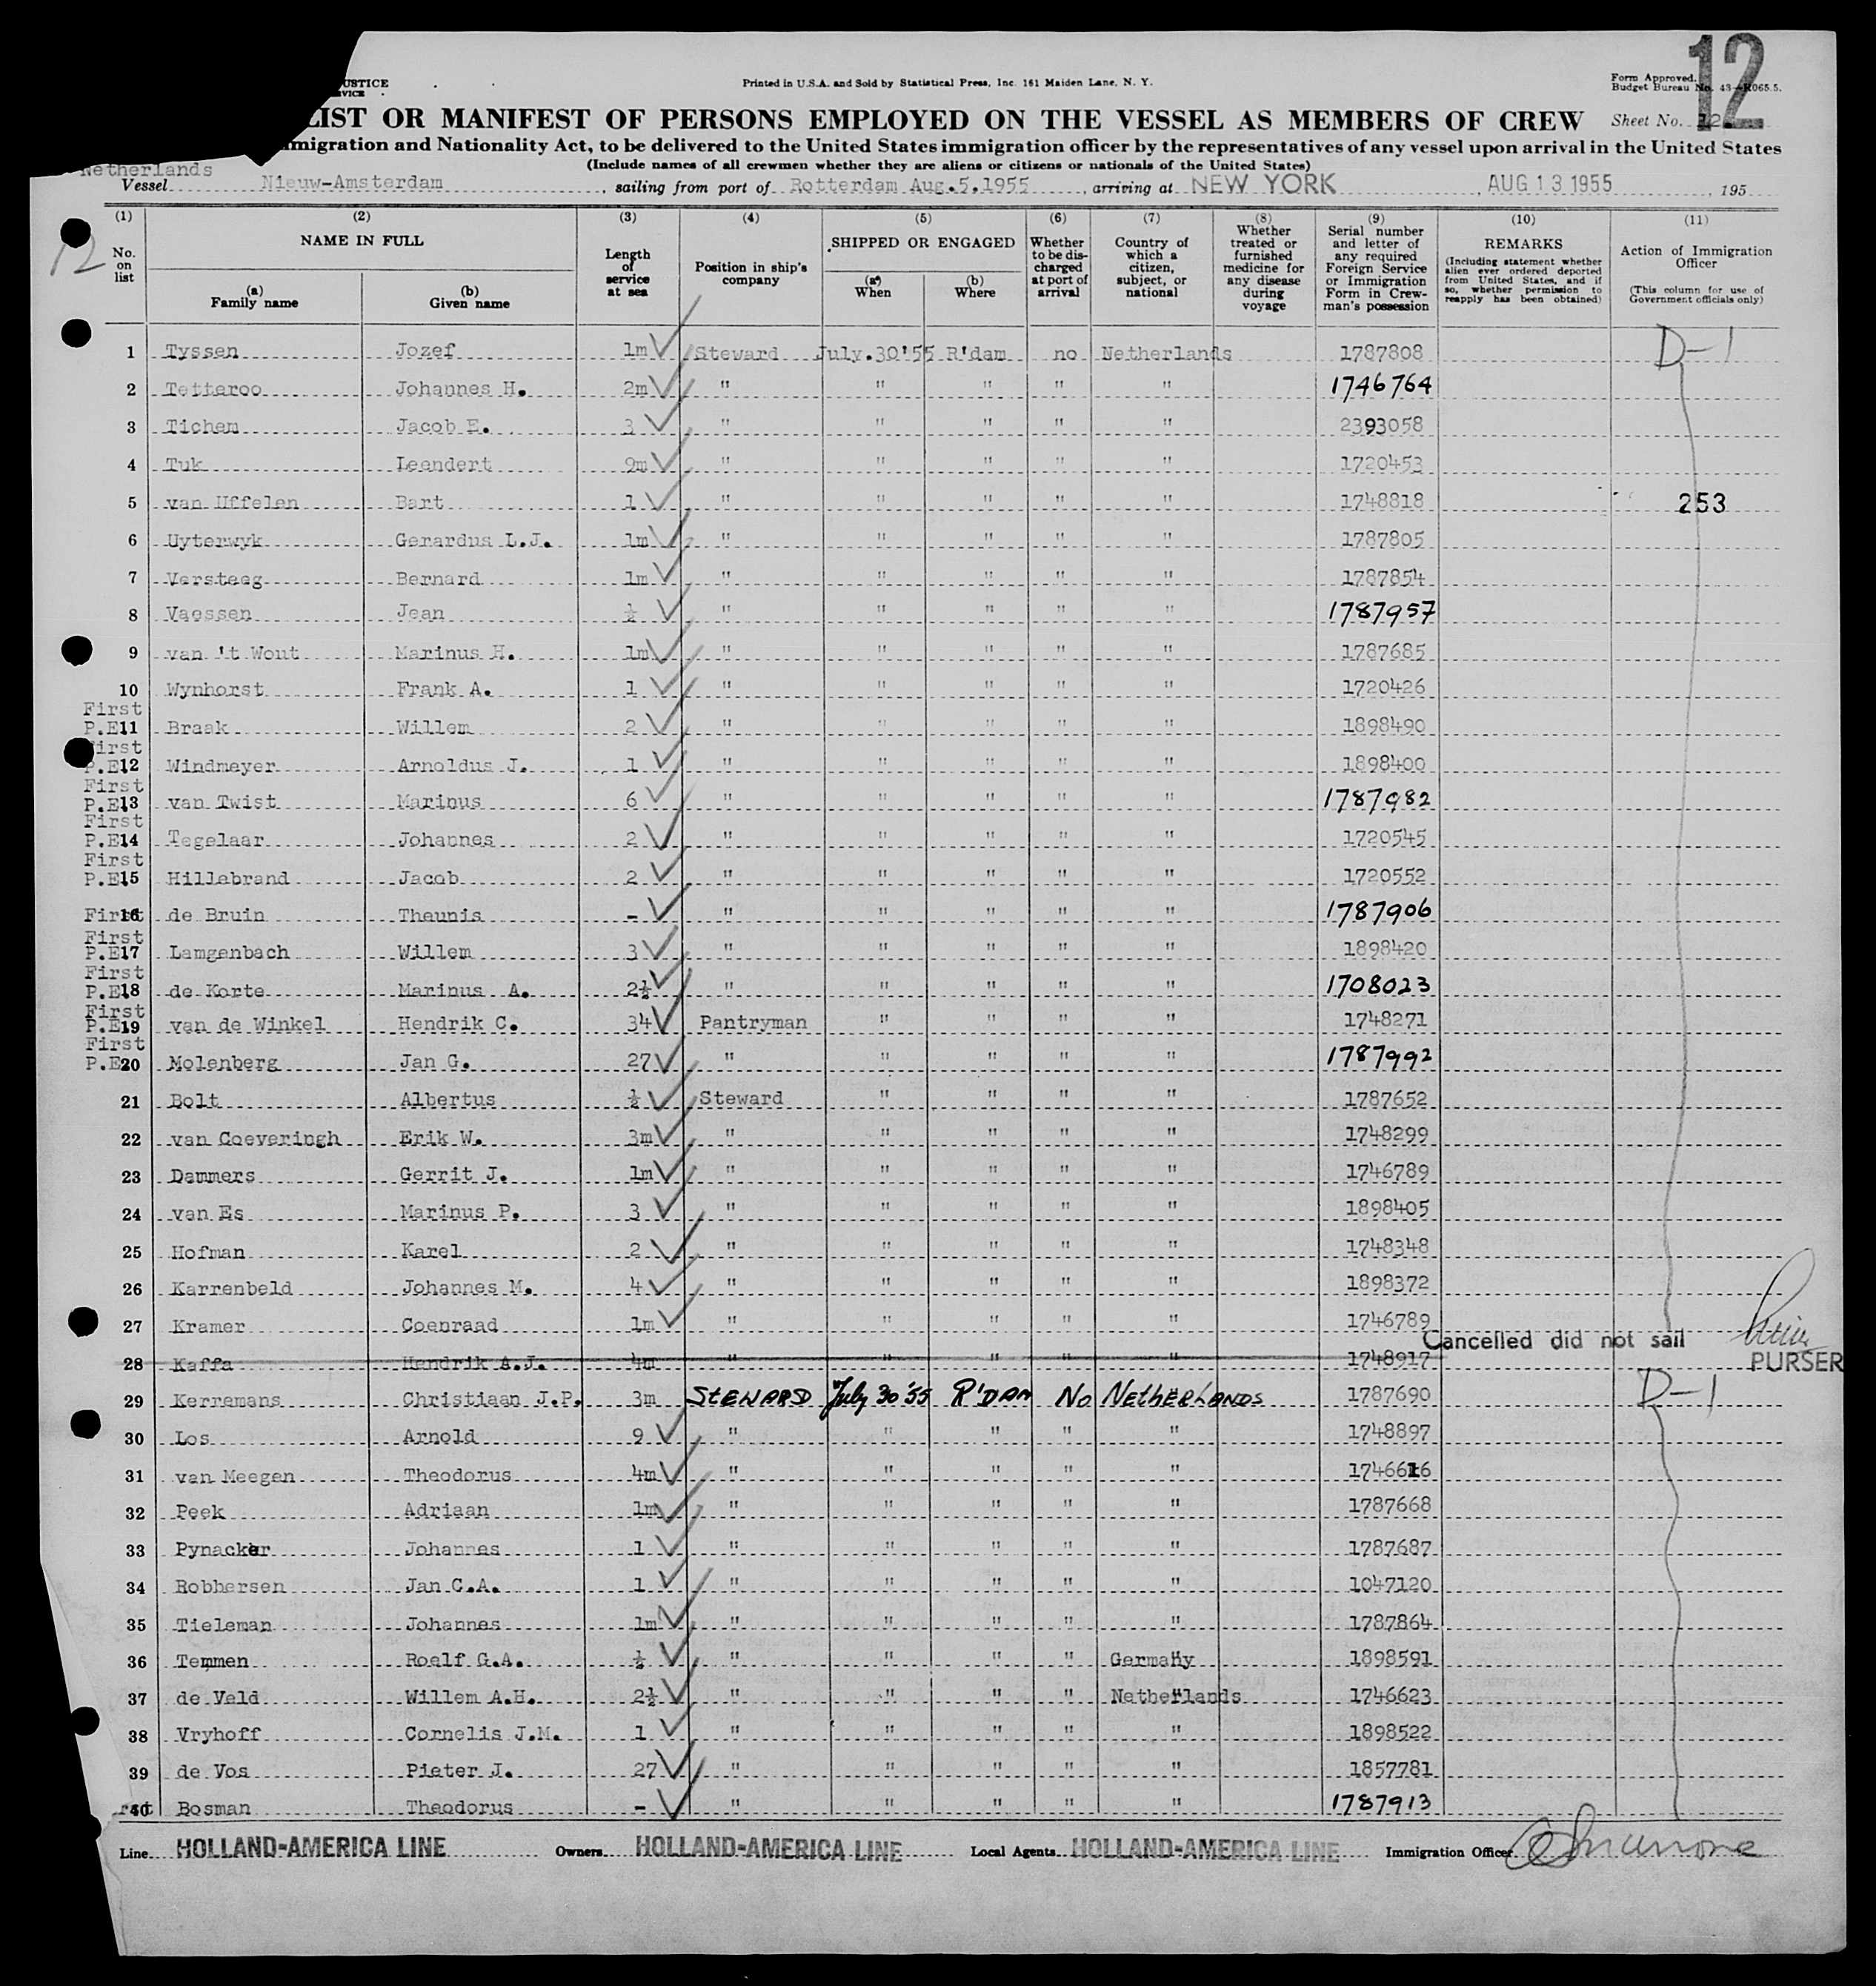 12
USTICE
VICE
Printed in U.S.A. and Sold by Statistical Press, Inc. 161 Maiden Lane, N. Y.
Form Approved.
Budget Bureau No. 43—R065.5.
LIST OR MANIFEST OF PERSONS EMPLOYED ON THE VESSEL AS MEMBERS OF CREW
Sheet No. 12
mmigration and Nationality Act, to be delivered to the United States immigration officer by the representatives of any vessel upon arrival in the United States
(Include names of all crewmen whether they are aliens or citizens or nationals of the United States)
Netherlands
Vessel Nieuw-Amsterdam, sailing from port of Rotterdam Aug.5.1955, arriving at NEW YORK, AUG 13 1955, 195
12
(1) No. on list
(2) NAME IN FULL
(a) Family name
(b) Given name
(3) Length of service at sea
(4) Position in ship's company
(5) SHIPPED OR ENGAGED
(a) When
(b) Where
(6) Whether to be discharged at port of arrival
(7) Country of which a citizen, subject, or national
(8) Whether treated or furnished medicine for any disease during voyage
(9) Serial number and letter of any required Foreign Service or Immigration Form in Crewman's possession
(10) REMARKS (Including statement whether alien ever ordered deported from United States, and if so, whether permission to reapply has been obtained)
(11) Action of Immigration Officer (This column for use of Government officials only)
1 Tyssen Jozef 1m Steward July.30'55 R'dam no Netherlands 1787808 D-1
2 Tettaroo Johannes H. 2m " " " " " 1746764
3 Tichem Jacob E. 3 " " " " " 2393058
4 Tuk Leendert 9m " " " " " 1720453
5 van Uffelen Bart 1 " " " " " 1748818 253
6 Uyterwyk Gerardus L.J. 1m " " " " " 1787805
7 Versteeg Bernard 1m " " " " " 1787854
8 Vaessen Jean ½ " " " " " 1787957
9 van 't Wout Marinus H. 1m " " " " " 1787685
10 Wynhorst Frank A. 1 " " " " " 1720426
First
P.E11 Braak Willem 2 " " " " " 1898490
First
P.E12 Windmeyer Arnoldus J. 1 " " " " " 1898400
First
P.E13 van Twist Marinus 6 " " " " " 1787982
First
P.E14 Tegelaar Johannes 2 " " " " " 1720545
First
P.E15 Hillebrand Jacob 2 " " " " " 1720552
First 16 de Bruin Theunis - " " " " " 1787906
First
P.E17 Lamgenbach Willem 3 " " " " " 1898420
First
P.E18 de Korte Marinus A. 2½ " " " " " 1708023
First
P.E19 van de Winkel Hendrik C. 34 Pantryman " " " " 1748271
First
P.E20 Molenberg Jan G. 27 " " " " " 1787992
21 Bolt Albertus ½ Steward " " " " 1787652
22 van Coeveringh Erik W. 3m " " " " " 1748299
23 Dammers Gerrit J. 1m " " " " " 1746789
24 van Es Marinus P. 3 " " " " " 1898405
25 Hofman Karel 2 " " " " " 1748348
26 Karrenbeld Johannes M. 4 " " " " " 1898372
27 Kramer Coenraad 1m " " " " " 1746789
Cancelled did not sail
28 Kaffa Hendrik A.J. 4m " " " " " 1748917 PURSER
29 Kerremans Christiaan J.P. 3m STEWARD July 30'55 R'DAM No NETHERLANDS 1787690 D-1
30 Los Arnold 9 " " " " " 1748897
31 van Meegen Theodorus 4m " " " " " 1746616
32 Peek Adriaan 1m " " " " " 1787668
33 Pynacker Johannes 1 " " " " " 1787687
34 Robhersen Jan C.A. 1 " " " " " 1047120
35 Tieleman Johannes 1m " " " " " 1787864
36 Temmen Roelf G.A. ½ " " " " Germany 1898591
37 de Veld Willem A.H. 2½ " " " " Netherlands 1746623
38 Vryhoff Cornelis J.M. 1 " " " " " 1898522
39 de Vos Pieter J. 27 " " " " " 1857781
rst 40 Bosman Theodorus - " " " " " 1787913
Line HOLLAND-AMERICA LINE Owners HOLLAND-AMERICA LINE Local Agents HOLLAND-AMERICA LINE Immigration Officer